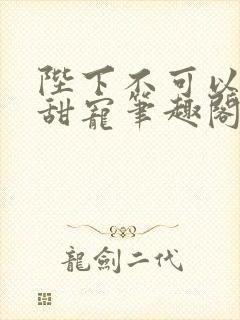 陛下不可以
甜寵筆趣閣
龍劍二代